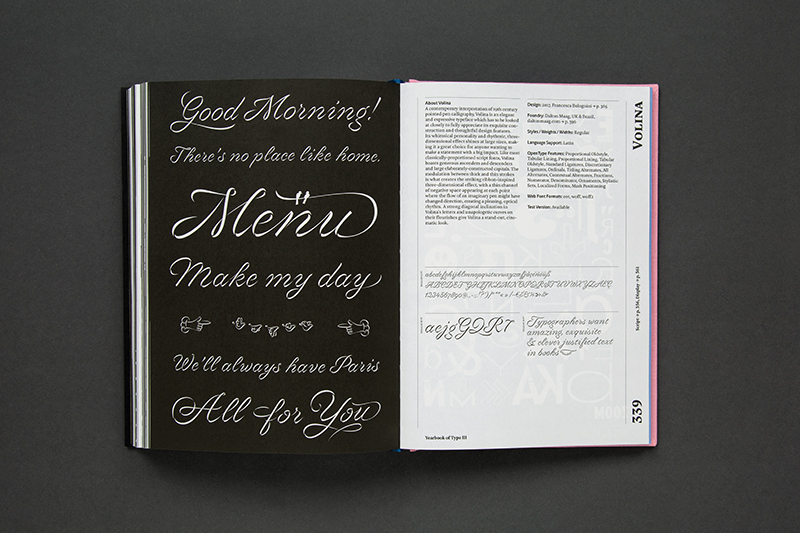 Good Morning!
There's no place like home.
Menu
Make my day
We'll always have Paris
All for You
About Volina
A contemporary interpretation of 19th century
pointed pen calligraphy, Volina is an elegant
and expressive typeface which has to be looked
at closely to fully appreciate its exquisite con-
struction and thoughtful design features.
Its whimsical personality and rhythmic, three-
dimensional effect shines at large sizes, mak-
ing it a great choice for anyone wanting to
make a statement with a big impact. Like most
classically-proportioned script fonts, Volina
boasts generous ascenders and descenders
and large elaborately-constructed capitals. The
modulation between thick and thin strokes
is what creates the striking ribbon-inspired
three-dimensional effect, with a thin channel
of negative space appearing at each point
where the flow of an imaginary pen might have
changed direction, creating a pleasing, optical
rhythm. A strong diagonal inclination in
Volina's letters and unapologetic moves on
their flourishes give Volina a stand-out, cine-
matic look.
Design: 2017, Francesca Bolognini
Foundry: Dalton Maag, UK & Brazil,
daltonmaag.com
Styles / Weights / Widths: Regular
Language Support: Latin
OpenType Features: Proportional Oldstyle,
Tabular Lining, Proportional Lining, Tabular
Oldstyle, Standard Ligatures, Discretionary
Ligatures, Ordinals, Titling Alternates, All
Alternates, Contextual Alternates, Fractions,
Numerator, Denominators, Ornaments, Stylistic
Sets, Localized Forms, Mark Positioning
Web Font Formats: eot, woff, woff2
Test Version: Available
aejgGQR7
Typographers want
amazing, exquisite
& clever justified text
in books
Yearbook of Type III
VOLINA
339